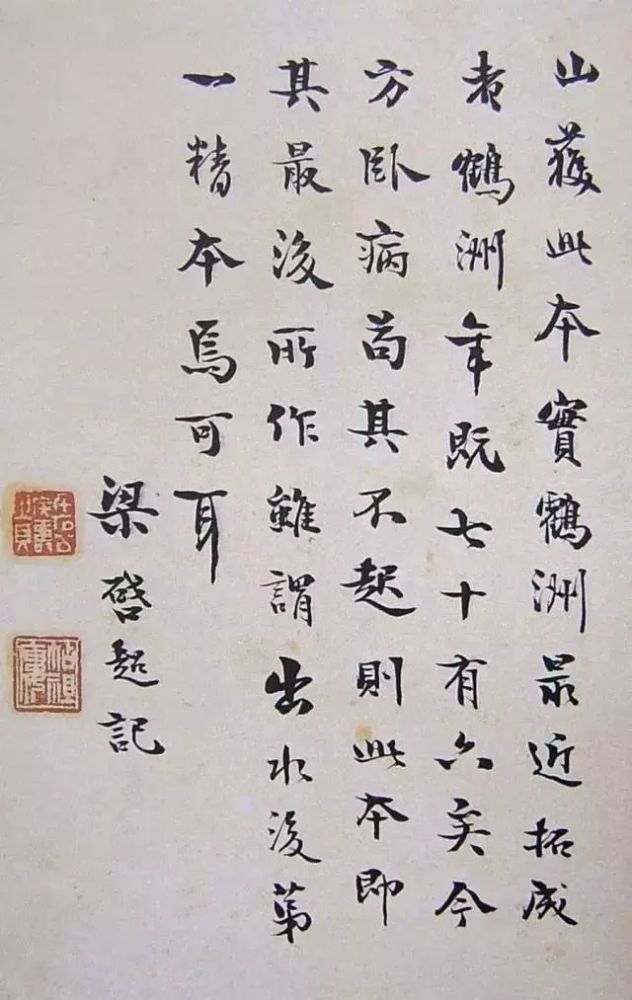 山獲此本實鶴洲最近拓成
者鶴洲年既七十有六矣今
方臥病苟其不起則此本即
其最後所作雖謂出水後第
一精本焉可耳
梁啓超記